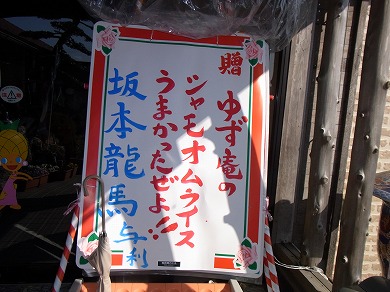 贈
ゆず庵の
シャモオムライス
うまかったぜよ!!
坂本龍馬与利